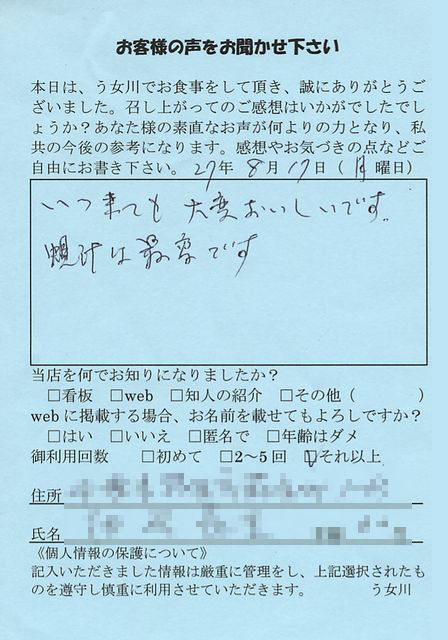 お客様の声をお聞かせ下さい
本日は、う女川でお食事をして頂き、誠にありがとうご
ざいました。召し上がってのご感想はいかがでしたでし
ょうか？あなた様の素直なお声が何よりの力となり、私
共の今後の参考になります。感想やお気づきの点などご
自由にお書き下さい。27年 8月17日（月曜日）
いつ来ても 大変おいしいです。
は最高です
当店を何でお知りになりましたか？
□看板 □web □知人の紹介 □その他（ ）
webに掲載する場合、お名前を載せてもよろしですか？
□はい □いいえ □匿名で □年齢はダメ
御利用回数 □初めて □2～5回 ☑それ以上
住所
氏名
《個人情報の保護について》
記入いただきました情報は厳重に管理をし、上記選択されたも
のを遵守し慎重に利用させていただきます。 う女川